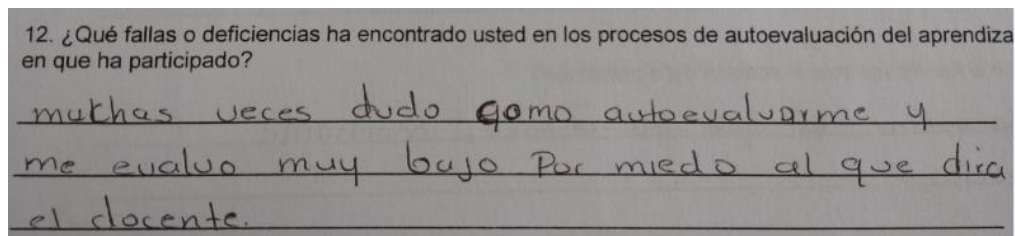 12. ¿Qué fallas o deficiencias ha encontrado usted en los procesos de autoevaluación del aprendiza
en que ha participado?
muchas veces dudo como autoevaluarme y
me evaluo muy bajo Por miedo al que dira
el docente.